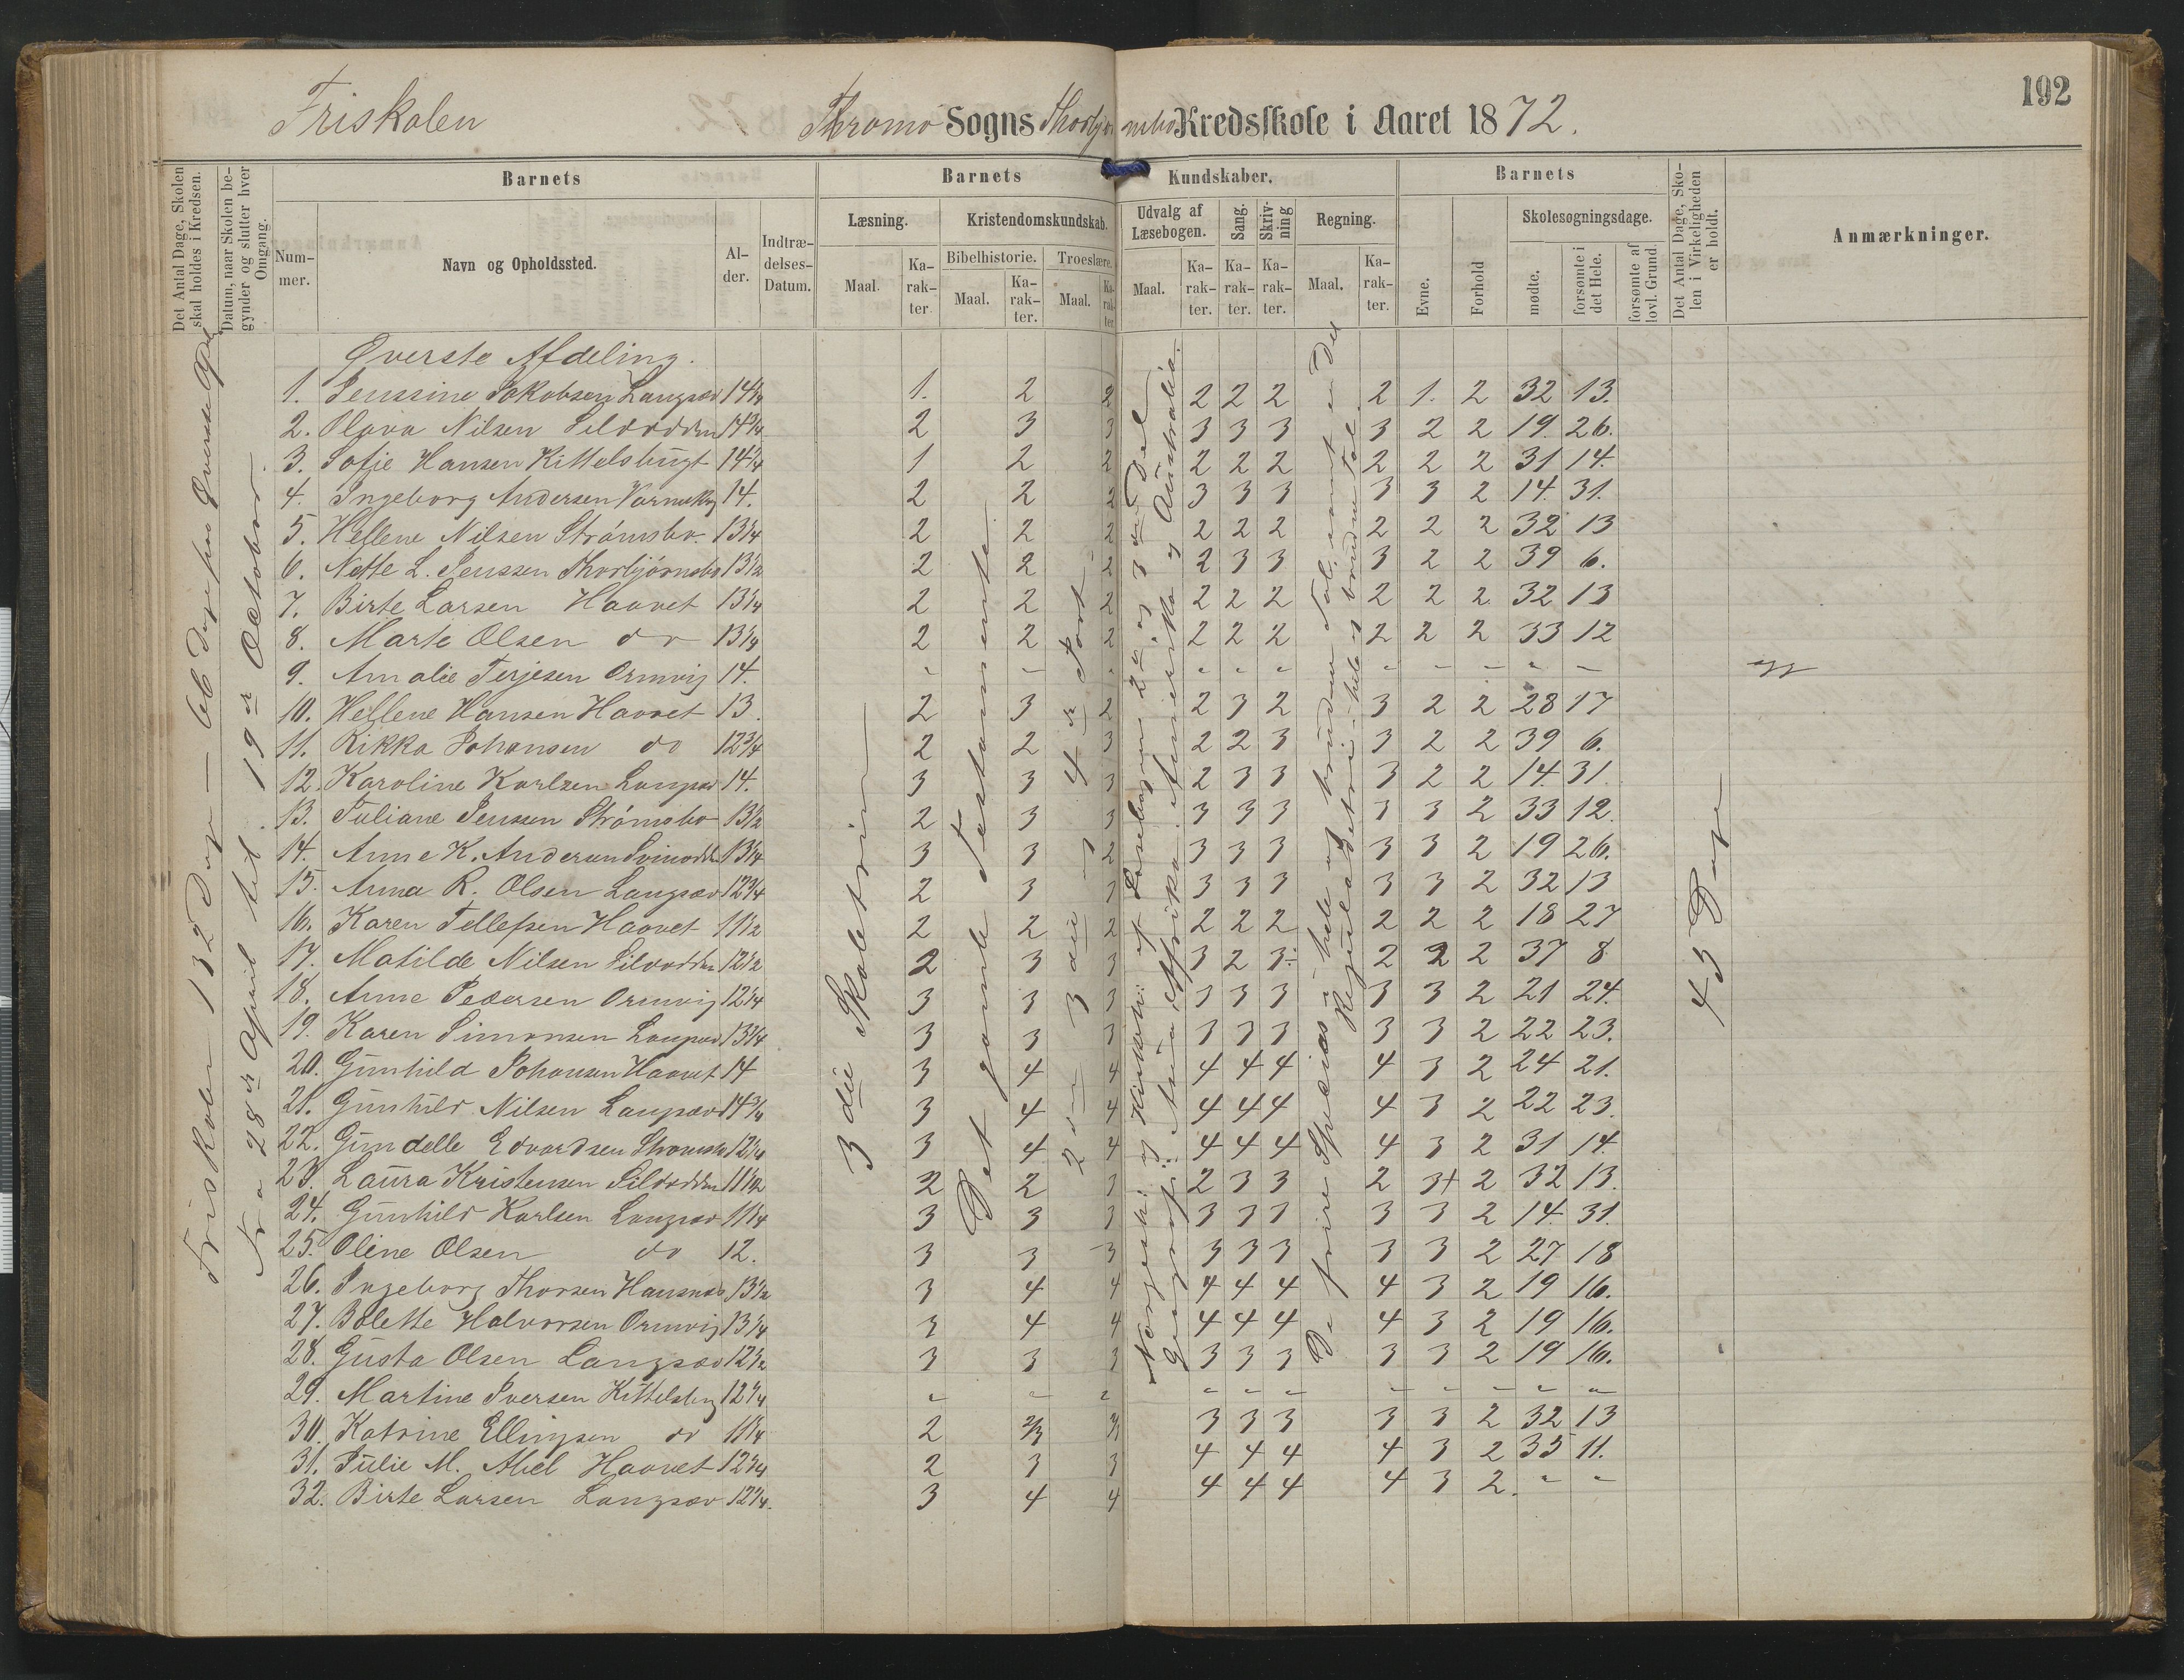 192
Friskolen Thromø Sogns Thorbjørnsbo Kredsskole i Aaret 1872.
Det Antal Dage, Skolen skal holdes i Kredsen.
Datum, naar Skolen begynder og slutter hver Omgang.
Barnets
Nummer.
Navn og Opholdssted.
Alder.
Indtrædelses-Datum.
Barnets Kundskaber.
Læsning.
Maal.
Karakter
Kristendomskundskab.
Bibelhistorie.
Maal.
Karakter.
Troeslære.
Maal.
Karakter.
Udvalg af Læsebogen.
Maal.
Karakter.
Sang.
Karakter.
Skrivning
Karakter.
Regning.
Maal.
Karakter.
Barnets
Evne.
Forhold
Skolesøgningsdage.
mødte.
forsømte i det Hele.
forsømte af lovl. Grund.
Det Antal Dage, Skolen i Virkeligheden er holdt.
Anmærkninger.
Friskolen 132 Dage
Fra 28de April til 19de October
Øverste Afdeling.
3die Skoletrin
Det gamle Testamente
Geografi: Asia, Afrika, Amerika og Australia.
De fire Specier i hele og brudne Tal, samt en Del
43 Dage
1. Jenssine Jakobsen Langsæv 14¾ 1. 2 2 2 2 2 2 1. 2 32 13.
2. Olava Nilsen Sildodden 14¾ 2 3 3 3 3 3 3 2 2 19. 26.
3. Sofie Hansen Kittelsbugt 14¾ 1 2 2 2 2 2 2 2 2 31 14.
4. Ingeborg Andersen 14. 2 2 2 3 3 3 3 3 2 14. 31.
5. Hellene Nilsen Strømsbo. 13¾ 2 2 2 2 2 2 2 2 2 32 13
6. Nette L. Jenssen Thorbjørnsbo 13½ 2 2 2 2 3 3 3 2 2 39 6.
7. Birte Larsen Haavet 13¼ 2 2 2 2 2 2 2 2 2 32 13
8. Marte Olsen do 13¼ 2 2 2 2 2 2 2 2 2 33 12
9. Amalie Terjesen Ormvig 14. - - - - - - - - - - -
10. Hellene Hansen Haavet 13. 2 3 2 2 3 2 3 2 2 28 17
11. Rikka Johansen do 12¾ 2 2 3 2 2 3 3 2 2 39 6.
12. Karoline Karlsen Langsæv 14. 3 3 3 2 3 3 3 2 2 14. 31
13. Juliane Jenssen Strømsbo 13½ 2 3 3 3 3 3 3 3 2 33 12.
14. Anne K. Andersen Svinodden 13¼ 3 3 2 3 3 3 3 3 2 19 26.
15. Anna R. Olsen Langsæv 12¾ 2 3 3 3 3 3 3 3 2 32 13
16. Karen Tellefsen Haavet 11½ 2 2 2 2 2 2 2 2 2 18 27
17. Matilde Nilsen Sildodden 12½ 2 3 3 3 2 3÷ 2 2 2 37 8
18. Anne Pedersen Ormvig 12¼ 3 3 3 3 3 3 3 3 2 21 24.
19. Karen Simonsen Langsæv 13¼ 3 3 3 3 3 3 3 3 2 22 23.
20. Gunhild Johansen Haavet 14 3 4 4 4 4 4 4 3 2 24 21.
21. Gunhild Nilsen Langsæv 14¾ 3 4 4 4 4 4 4 3 2 22 23.
22. Gundelle Edvardsen Strømsbo 12¼ 3 4 4 4 4 4 4 3 2 31 14.
23. Laura Kristensen Sildodden 11½ 2 2 3 2 3 3 2 3+ 2 32 13.
24. Gunhild Karlsen Langsæv 11¼ 3 3 3 3 3 3 3 3 2 14. 31.
25. Oline Olsen do 12. 3 3 3 3 3 3 3 3 2 27 18
26. Ingeborg Thorsen 13½ 3 4 4 4 4 4 4 3 2 19 16.
27. Bolette Halvorsen Ormvig 13¼ 3 4 4 4 4 4 4 3 2 19 16.
28. Gusta Olsen Langsæv 12½ 3 3 3 3 3 3 3 3 2 19 16.
29. Martine Iversen Kittelsbug 12¼ - - - - - - - - - - -
30. Katrine Ellingsen do 11¼ 2 2/3 3 3 3 3 3 2 32 13
31. Julie M. Abel Haavet 12¼ 2 3 3 4 4 4 4 3 2 35 11.
32. Birte Larsen Langsæv 12¼. 3 4 4 4 4 4 4 3 2. - -